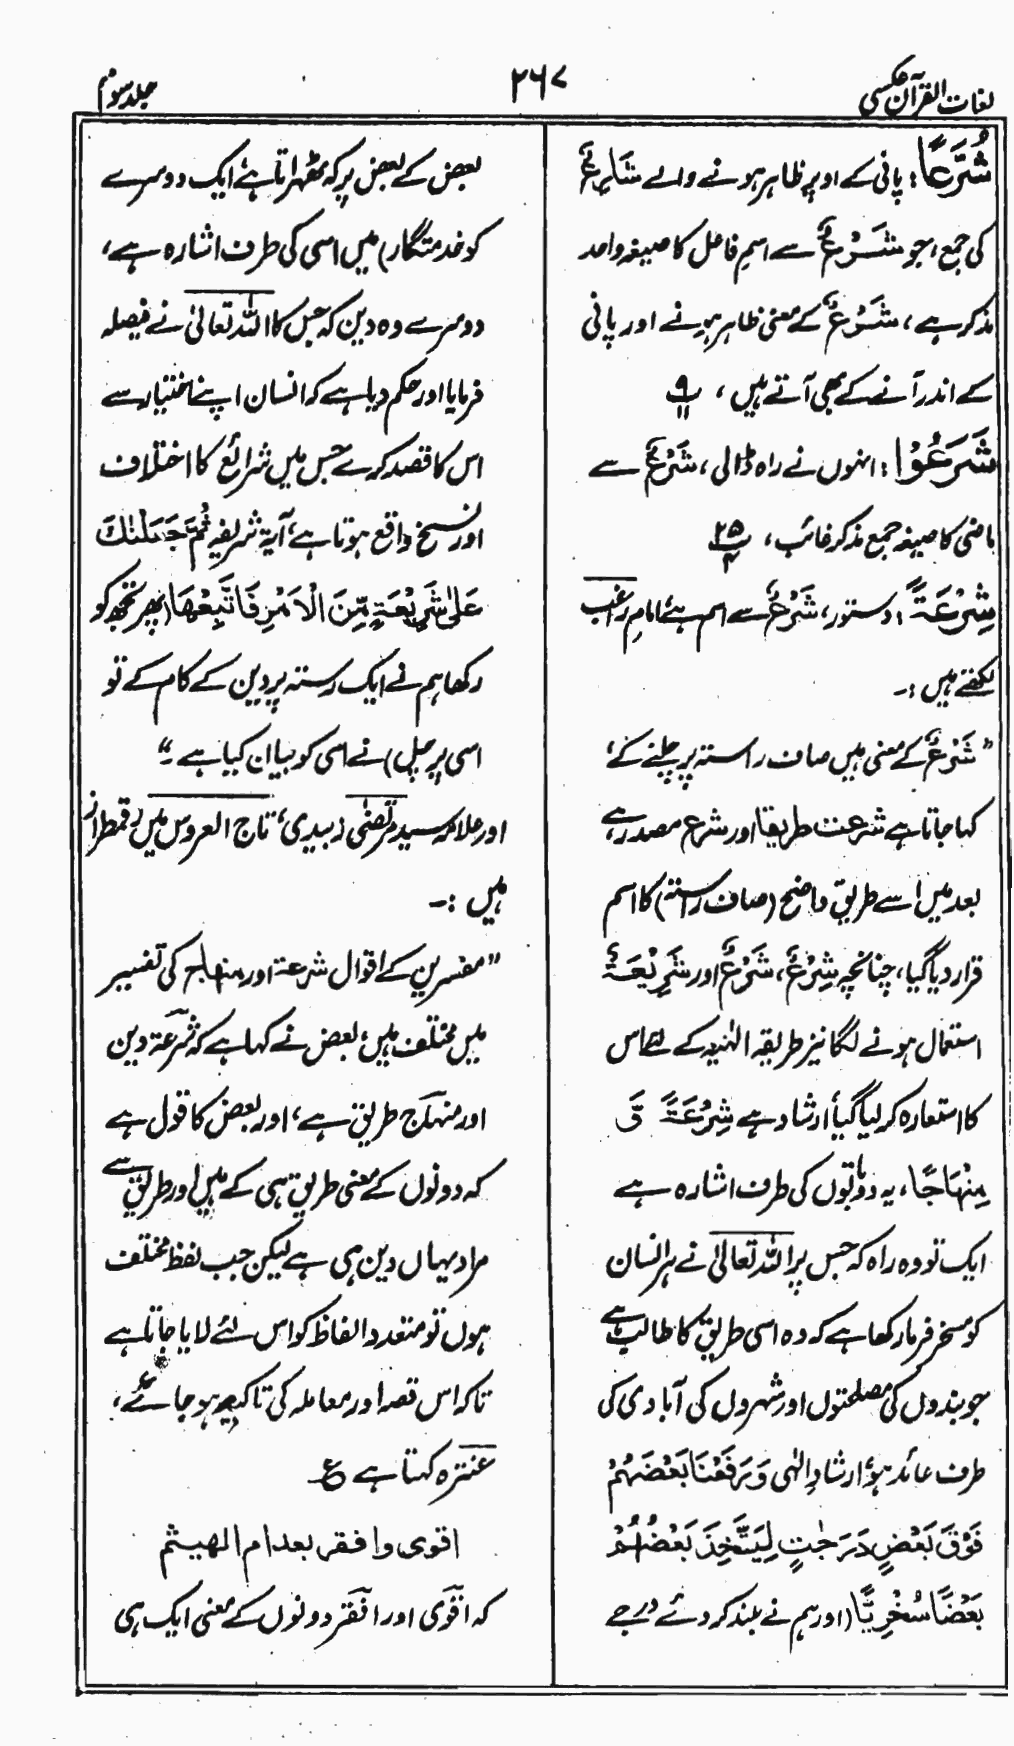 لغات القرآن عکسی
۲۶۷
جلد سوم
شُرَّعًا: پانی کے اوپر ظاہر ہونے والے شَارِعٌ
کی جمع، جو شَرْعٌ سے اسمِ فاعل کا صیغہ واحد
مذکر ہے، شَرْعٌ کے معنی ظاہر ہونے اور پانی
کے اندر آنے کے بھی آتے ہیں، پ۹ ۱۱
شَرَعُوْا: انہوں نے راہ ڈالی، شَرْعٌ سے
ماضی کا صیغہ جمع مذکر غائب، پ۲۵ ۴
شِرْعَةً: دستور، شَرْعٌ سے اسم ہے، امام راغب
لکھتے ہیں :۔
"شَرْعٌ کے معنی ہیں صاف راستہ پر چلنے کے،
کہا جاتا ہے شرعت طریقا اور شرع مصدر ہے
بعد میں اسے طریقِ واضح (صاف راستہ) کا اسم
قرار دیا گیا، چنانچہ شِرْعٌ، شَرْعٌ اور شَرِيْعَةٌ
استعمال ہونے لگا نیز طریقہ الٰہیہ کے لئے اس
کا استعارہ کر لیا گیا، ارشاد ہے شِرْعَةً وَّ
مِنْهَاجًا، یہ دو باتوں کی طرف اشارہ ہے
ایک تو وہ راہ کہ جس پر اللہ تعالیٰ نے ہر انسان
کو مسخر فرما رکھا ہے کہ وہ اسی طریق کا طالب ہے
جو بندوں کی مصلحتوں اور شہروں کی آبادی کی
طرف عائد ہو، ارشادِ الٰہی وَرَفَعْنَا بَعْضَهُمْ
فَوْقَ بَعْضٍ دَرَجٰتٍ لِيَتَّخِذَ بَعْضُهُمْ
بَعْضًا سُخْرِيًّا (اور ہم نے بلند کر دئے درجے
بعض کے بعض پر کہ ٹھہراتا ہے ایک دوسرے
کو خدمتگار) میں اسی کی طرف اشارہ ہے،
دوسرے وہ دین کہ جس کا اللہ تعالیٰ نے فیصلہ
فرمایا اور حکم دیا ہے کہ انسان اپنے اختیار سے
اس کا قصد کرے جس میں شرائع کا اختلاف
اور نسخ واقع ہوتا ہے، آیۃ شریفہ ثُمَّ جَعَلْنٰكَ
عَلٰى شَرِيْعَةٍ مِّنَ الْاَمْرِ فَاتَّبِعْهَا (پھر تجھ کو
رکھا ہم نے ایک رستہ پر دین کے کام کے تو
اسی پر چل) نے اسی کو بیان کیا ہے۔"
اور علامہ سید مرتضیٰ زبیدی، تاج العروس میں رقمطراز
ہیں :۔
"مفسرین کے اقوال شرعۃ اور منہاج کی تفسیر
میں مختلف ہیں، بعض نے کہا ہے کہ شرعۃ دین
اور منہاج طریق ہے، اور بعض کا قول ہے
کہ دونوں کے معنی طریق ہی کے ہیں اور طریق سے
مراد یہاں دین ہی ہے لیکن جب لفظ مختلف
ہوں تو متعدد الفاظ کو اس لئے لایا جاتا ہے
تاکہ اس قصہ اور معاملہ کی تاکید ہو جائے،
عنترہ کہتا ہے ع
اقوی وافقر بعد ام الهیثم
کہ اقوی اور افقر دونوں کے معنی ایک ہی